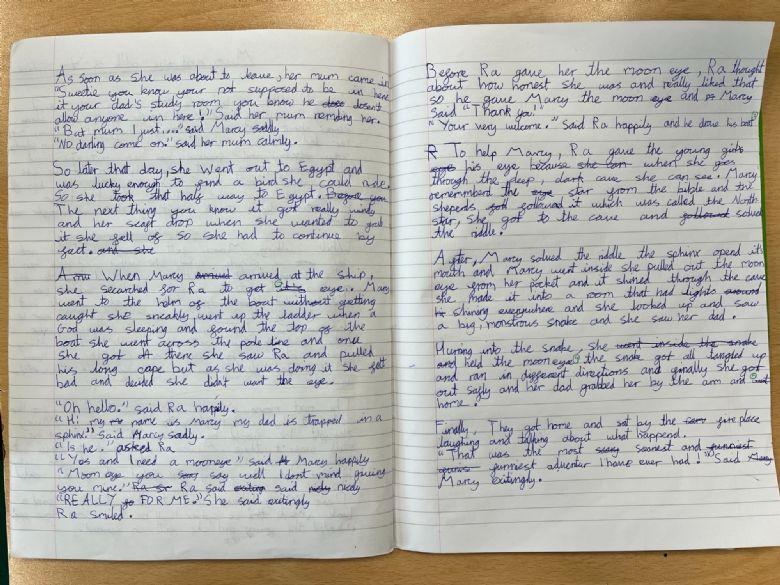 As soon as she was about to leave, her mum came in
"Sweetie you know your not supposed to be in here
it your dad's study room you know he does doesn't
allow anyone in here!" Said her mum reminding her.
"But mum I just...." said Marcy sadly
"NO darling come on." said her mum calmly.
So later that day, she went out to Egypt and
was lucky enough to find a bird she could ride.
So she took that half way to Egypt.
The next thing you know it got really windy
and her scarf drop when she wanted to grab
it she fell of so she had to continue by
feet. and she
When Marcy arrived arrived at the ship,
she searched for Ra to get his eye. Marcy
went to the helm of the boat without getting
caught she sneakly went up the ladder when a
God was sleeping and found the top of the
boat she went across the pole line and once
she got there she saw Ra and pulled
his long cape but as she was doing it she felt
bad and decided she didn't want the eye.
"Oh hello." said Ra happily.
"Hi my name is Marcy my dad is trapped in a
sphinx." Said Marcy sadly.
"Is he.. asked Ra
"Yes and I need a mooneye" said Marcy happily
"Moon eye you say well I dont mind giving
you mine." Ra said said nicely
"REALLY FOR ME." She said exitingly
Ra smiled.
Before Ra gave her the moon eye, Ra thought
about how honest she was and really liked that
so he gave Marcy the moon eye and Marcy
Said "Thank you!"
"Your very welcome." Said Ra happily and he drove his boat
To help Marcy, Ra gave the young girls
his eye because she can when she goes
through the deep, dark cave she can see. Marcy
rememberd the star from the bible and the
sheperds followed it which was called the North
star, she got to the cave and followed solved
the riddle.
After, Marcy solved the riddle the sphinx opend it's
mouth and Marcy went inside she pulled out the moon
eye from her pocket and it shined through the cave
she made it into a room that had lights around
shining everywhere and she looked up and saw
a big, monstrous snake and she saw her dad.
into the snake, she went inside the snake
and held the mooneye, the snake got all tangled up
and ran in different directions and finally she got
out safly and her dad grabbed her by the arm and went
home.
Finally, They got home and sat by the fire place
laughing and talking about what happend.
"That was the most scary scariest and funniest
funniest adventur I have ever had." Said Marcy
Marcy exitingly.